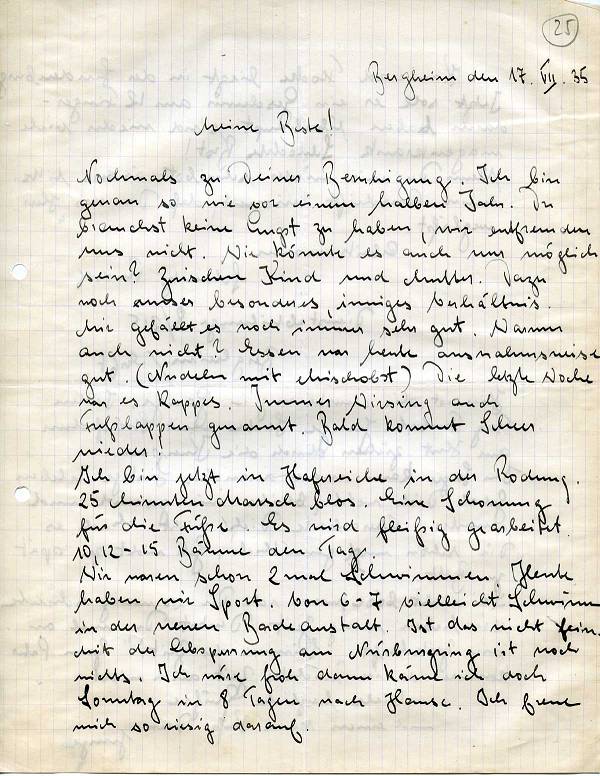 25
Bergheim den 17. VII. 35
Meine Beste!
Nochmals zu Deiner Beruhigung. Ich bin
genau so wie vor einem halben Jahr. Du
brauchst keine Angst zu haben, wir entfremden
uns nicht. Wie könnte es auch nur möglich
sein? Zwischen Kind und Mutter. Dazu
noch unser besonderes, inniges Verhältnis.
Mir gefällt es noch immer sehr gut. Warum
auch nicht? Essen war heute ausnahmsweise
gut. (Nudeln mit Mischobst) Die letzte Woche
war es Kappes. Immer Wirsing auch
Fußlappen genannt. Bald kommt
wieder.
Ich bin jetzt in in der Rodung.
25 Minuten Marsch blos. Eine Schonung
für die Füße. Es wird fleißig gearbeitet.
10, 12 - 15 Bäume den Tag.
Wir waren schon 2 mal Schwimmen. Heute
haben wir Sport. Von 6-7 vielleicht Schwimm
in der neuen Badeanstalt. Ist das nicht fein.
Mit der Absperrung am Nürburgring ist noch
nichts. Ich wäre froh dann käme ich doch
Sonntag in 8 Tagen nach Hause. Ich freue
mich so riesig darauf.